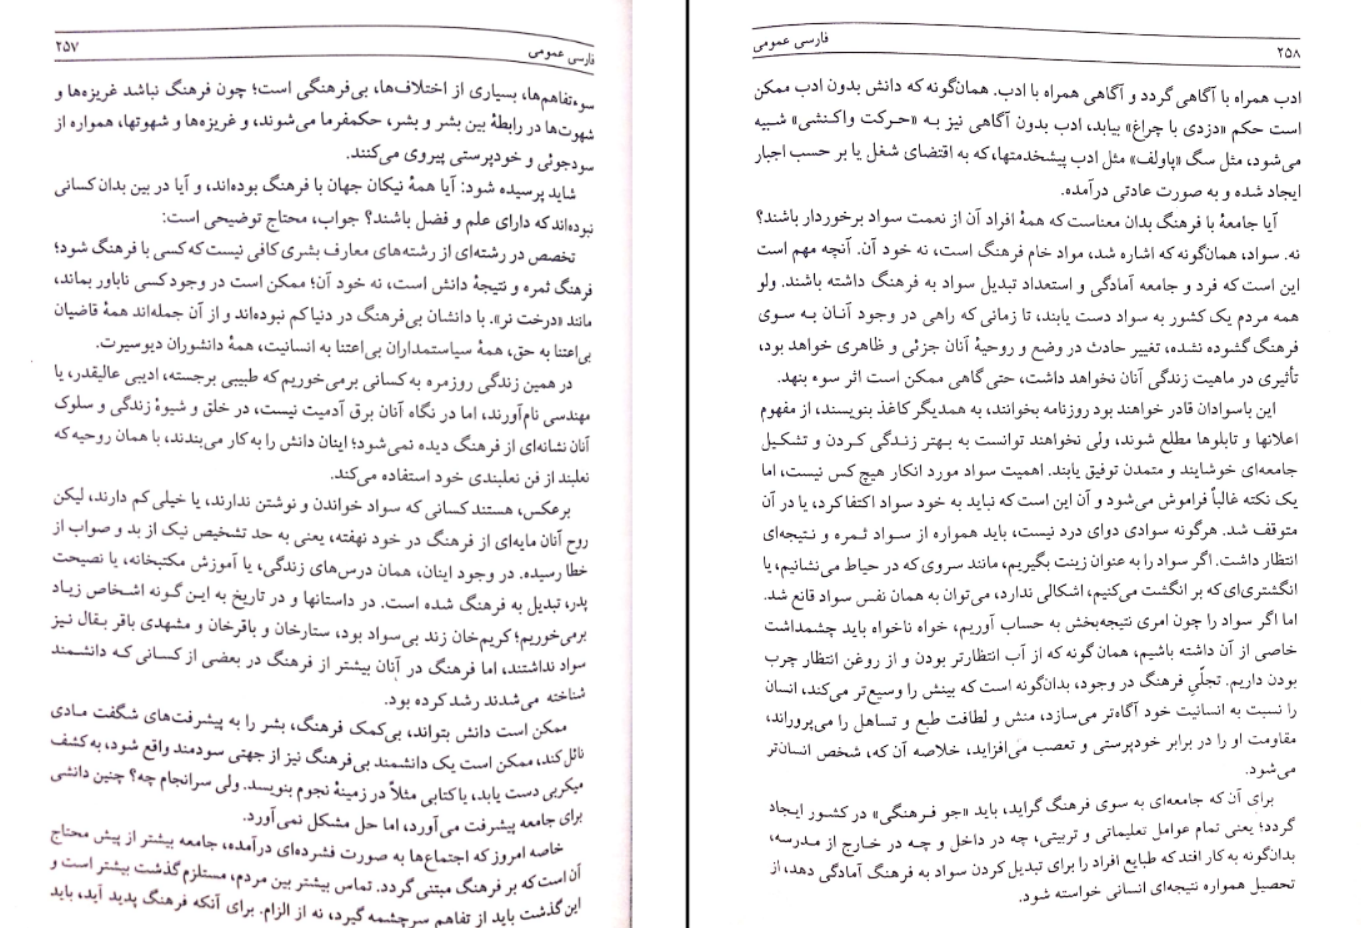 ۲۵۷
فارسی عمومی
سوءتفاهم‌ها، بسیاری از اختلاف‌ها، بی‌فرهنگی است؛ چون فرهنگ نباشد غریزه‌ها و
شهوت‌ها در رابطهٔ بین بشر و بشر، حکمفرما می‌شوند، و غریزه‌ها و شهوتها، همواره از
سودجوئی و خودپرستی پیروی می‌کنند.
شاید پرسیده شود: آیا همهٔ نیکان جهان با فرهنگ بوده‌اند، و آیا در بین بدان کسانی
نبوده‌اند که دارای علم و فضل باشند؟ جواب، محتاج توضیحی است:
تخصص در رشته‌ای از رشته‌های معارف بشری کافی نیست که کسی با فرهنگ شود؛
فرهنگ ثمره و نتیجهٔ دانش است، نه خود آن؛ ممکن است در وجود کسی ناباور بماند،
مانند «درخت نر». با دانشان بی‌فرهنگ در دنیا کم نبوده‌اند و از آن جمله‌اند همهٔ قاضیان
بی‌اعتنا به حق، همهٔ سیاستمداران بی‌اعتنا به انسانیت، همهٔ دانشوران دیوسیرت.
در همین زندگی روزمره به کسانی برمی‌خوریم که طبیبی برجسته، ادیبی عالیقدر، یا
مهندسی نام‌آورند، اما در نگاه آنان برق آدمیت نیست، در خلق و شیوهٔ زندگی و سلوک
آنان نشانه‌ای از فرهنگ دیده نمی‌شود؛ اینان دانش را به کار می‌بندند، با همان روحیه که
نعلبند از فن نعلبندی خود استفاده می‌کند.
برعکس، هستند کسانی که سواد خواندن و نوشتن ندارند، یا خیلی کم دارند، لیکن
روح آنان مایه‌ای از فرهنگ در خود نهفته، یعنی به حد تشخیص نیک از بد و صواب از
خطا رسیده. در وجود اینان، همان درس‌های زندگی، یا آموزش مکتبخانه، یا نصیحت
پدر، تبدیل به فرهنگ شده است. در داستانها و در تاریخ به این گونه اشخاص زیاد
برمی‌خوریم؛ کریم‌خان زند بی‌سواد بود، ستارخان و باقرخان و مشهدی باقر بقال نیز
سواد نداشتند، اما فرهنگ در آنان بیشتر از فرهنگ در بعضی از کسانی که دانشمند
شناخته می‌شدند رشد کرده بود.
ممکن است دانش بتواند، بی‌کمک فرهنگ، بشر را به پیشرفت‌های شگفت مادی
نائل کند، ممکن است یک دانشمند بی‌فرهنگ نیز از جهتی سودمند واقع شود، به کشف
میکربی دست یابد، یا کتابی مثلاً در زمینهٔ نجوم بنویسد. ولی سرانجام چه؟ چنین دانشی
برای جامعه پیشرفت می‌آورد، اما حل مشکل نمی‌آورد.
خاصه امروز که اجتماع‌ها به صورت فشرده‌ای درآمده، جامعه بیشتر از پیش محتاج
آن است که بر فرهنگ مبتنی گردد. تماس بیشتر بین مردم، مستلزم گذشت بیشتر است و
این گذشت باید از تفاهم سرچشمه گیرد، نه از الزام. برای آنکه فرهنگ پدید آید، باید
۲۵۸
فارسی عمومی
ادب همراه با آگاهی گردد و آگاهی همراه با ادب. همان‌گونه که دانش بدون ادب ممکن
است حکم «دزدی با چراغ» بیابد، ادب بدون آگاهی نیز به «حرکت واکنشی» شبیه
می‌شود، مثل سگ «پاولف» مثل ادب پیشخدمتها، که به اقتضای شغل یا بر حسب اجبار
ایجاد شده و به صورت عادتی درآمده.
آیا جامعهٔ با فرهنگ بدان معناست که همهٔ افراد آن از نعمت سواد برخوردار باشند؟
نه. سواد، همان‌گونه که اشاره شد، مواد خام فرهنگ است، نه خود آن. آنچه مهم است
این است که فرد و جامعه آمادگی و استعداد تبدیل سواد به فرهنگ داشته باشند. ولو
همه مردم یک کشور به سواد دست یابند، تا زمانی که راهی در وجود آنان به سوی
فرهنگ گشوده نشده، تغییر حادث در وضع و روحیهٔ آنان جزئی و ظاهری خواهد بود،
تأثیری در ماهیت زندگی آنان نخواهد داشت، حتی گاهی ممکن است اثر سوء بنهد.
این باسوادان قادر خواهند بود روزنامه بخوانند، به همدیگر کاغذ بنویسند، از مفهوم
اعلانها و تابلوها مطلع شوند، ولی نخواهند توانست به بهتر زندگی کردن و تشکیل
جامعه‌ای خوشایند و متمدن توفیق یابند. اهمیت سواد مورد انکار هیچ کس نیست، اما
یک نکته غالباً فراموش می‌شود و آن این است که نباید به خود سواد اکتفا کرد، یا در آن
متوقف شد. هرگونه سوادی دوای درد نیست، باید همواره از سواد ثمره و نتیجه‌ای
انتظار داشت. اگر سواد را به عنوان زینت بگیریم، مانند سروی که در حیاط می‌نشانیم، یا
انگشتری‌ای که بر انگشت می‌کنیم، اشکالی ندارد، می‌توان به همان نفس سواد قانع شد.
اما اگر سواد را چون امری نتیجه‌بخش به حساب آوریم، خواه ناخواه باید چشمداشت
خاصی از آن داشته باشیم، همان گونه که از آب انتظارتر بودن و از روغن انتظار چرب
بودن داریم. تجلّیِ فرهنگ در وجود، بدان‌گونه است که بینش را وسیع‌تر می‌کند، انسان
را نسبت به انسانیت خود آگاه‌تر می‌سازد، منش و لطافت طبع و تساهل را می‌پروراند،
مقاومت او را در برابر خودپرستی و تعصب می‌افزاید، خلاصه آن که، شخص انسان‌تر
می‌شود.
برای آن که جامعه‌ای به سوی فرهنگ گراید، باید «جو فرهنگی» در کشور ایجاد
گردد؛ یعنی تمام عوامل تعلیماتی و تربیتی، چه در داخل و چه در خارج از مدرسه،
بدان‌گونه به کار افتد که طبایع افراد را برای تبدیل کردن سواد به فرهنگ آمادگی دهد، از
تحصیل همواره نتیجه‌ای انسانی خواسته شود.